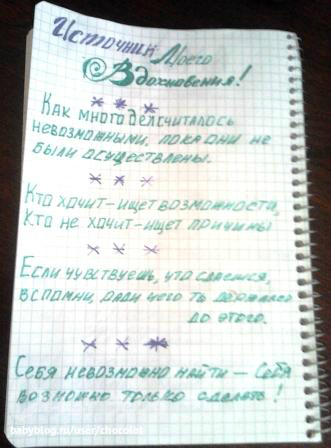 Источник Моего
Вдохновения!
Как много дел считалось
невозможными, пока они не
были осуществлены.
Кто хочит-ищет возможности,
Кто не хочит-ищет причины
Если чувствуешь, что сдаешся,
вспомни, ради чего ты держался
до этого.
Себя невозможно найти - Себя
возможно только сделать!
babyblog.ru/user/chocolet